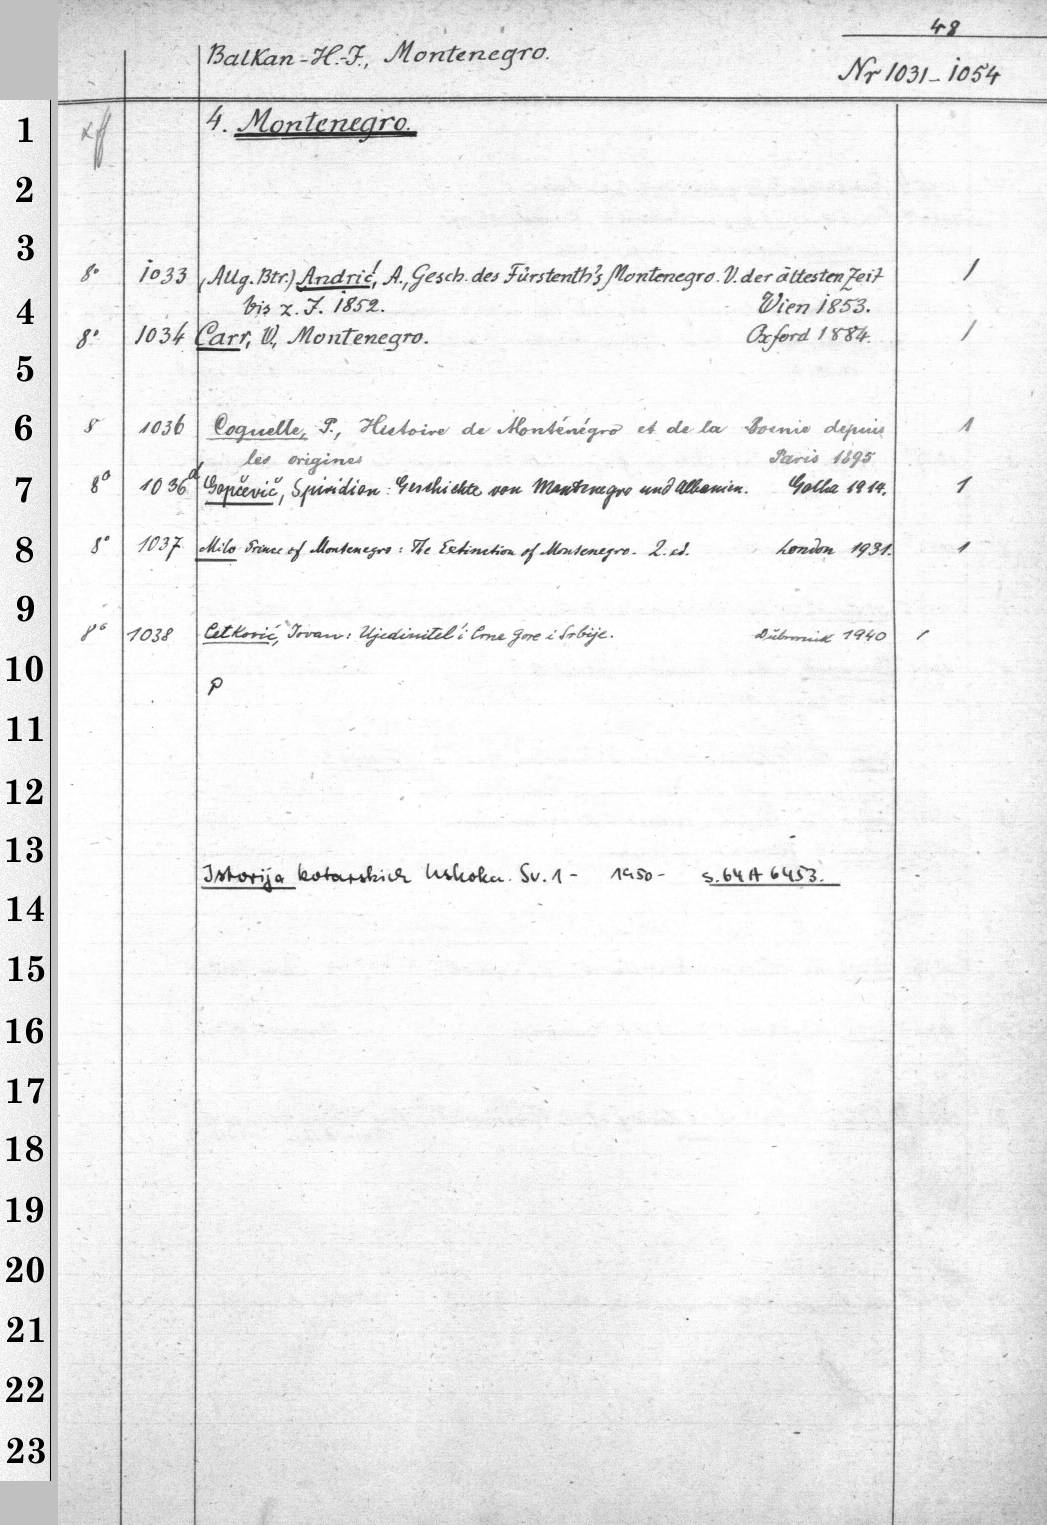 48
Balkan-H.-F., Montenegro.
Nr 1031-1054
1
4. Montenegro.
2
3
8° 1033 (Allg. Btr.) Andrić, A., Gesch. des Fürstenth's Montenegro. V. der ältesten Zeit 1
bis z. J. 1852. Wien 1853.
4
8° 1034 Carr, W, Montenegro. Oxford 1884. 1
5
6 8 1036 Coquelle, P., Histoire de Monténégro et de la Bosnie depuis 1
les origines Paris 1895
7 8° 1036d Gopčević, Spiridion: Geschichte von Montenegro und Albanien. Gotha 1914. 1
8 8° 1037 Milo Prince of Montenegro: The Extinction of Montenegro. 2. ed. London 1931. 1
9
8° 1038 Cetković, Jovan: Ujedinitelʹi Crne Gore i Srbije. Dubrovnik 1940 1
10
P
11
12
13
Istorija kotarskich Uskoka. Sv. 1- 1950- s. 64 A 6453.
14
15
16
17
18
19
20
21
22
23